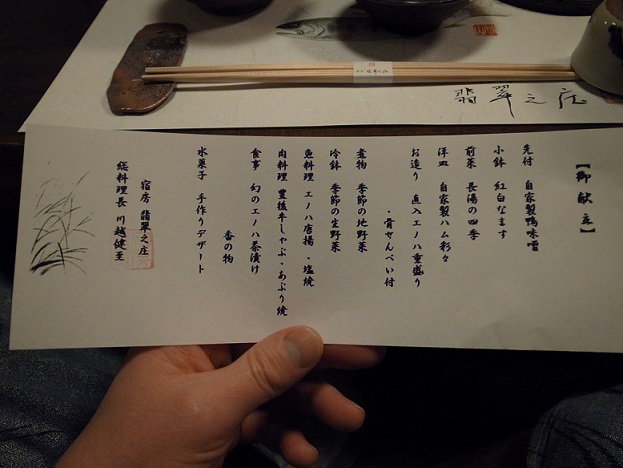 翡翠之庄
【御献立】
先付 自家製鴨味噌
小鉢 紅白なます
前菜 長湯の四季
洋皿 自家製ハム彩々
お造り 直入エノハ重盛り
・骨せんべい付
煮物 季節の地野菜
冷鉢 季節の生野菜
魚料理 エノハ唐揚・塩焼
肉料理 豊後牛しゃぶ・あぶり焼
食事 幻のエノハ茶漬け
香の物
水菓子 手作りデザート
宿房 翡翠之庄
総料理長 川越健至